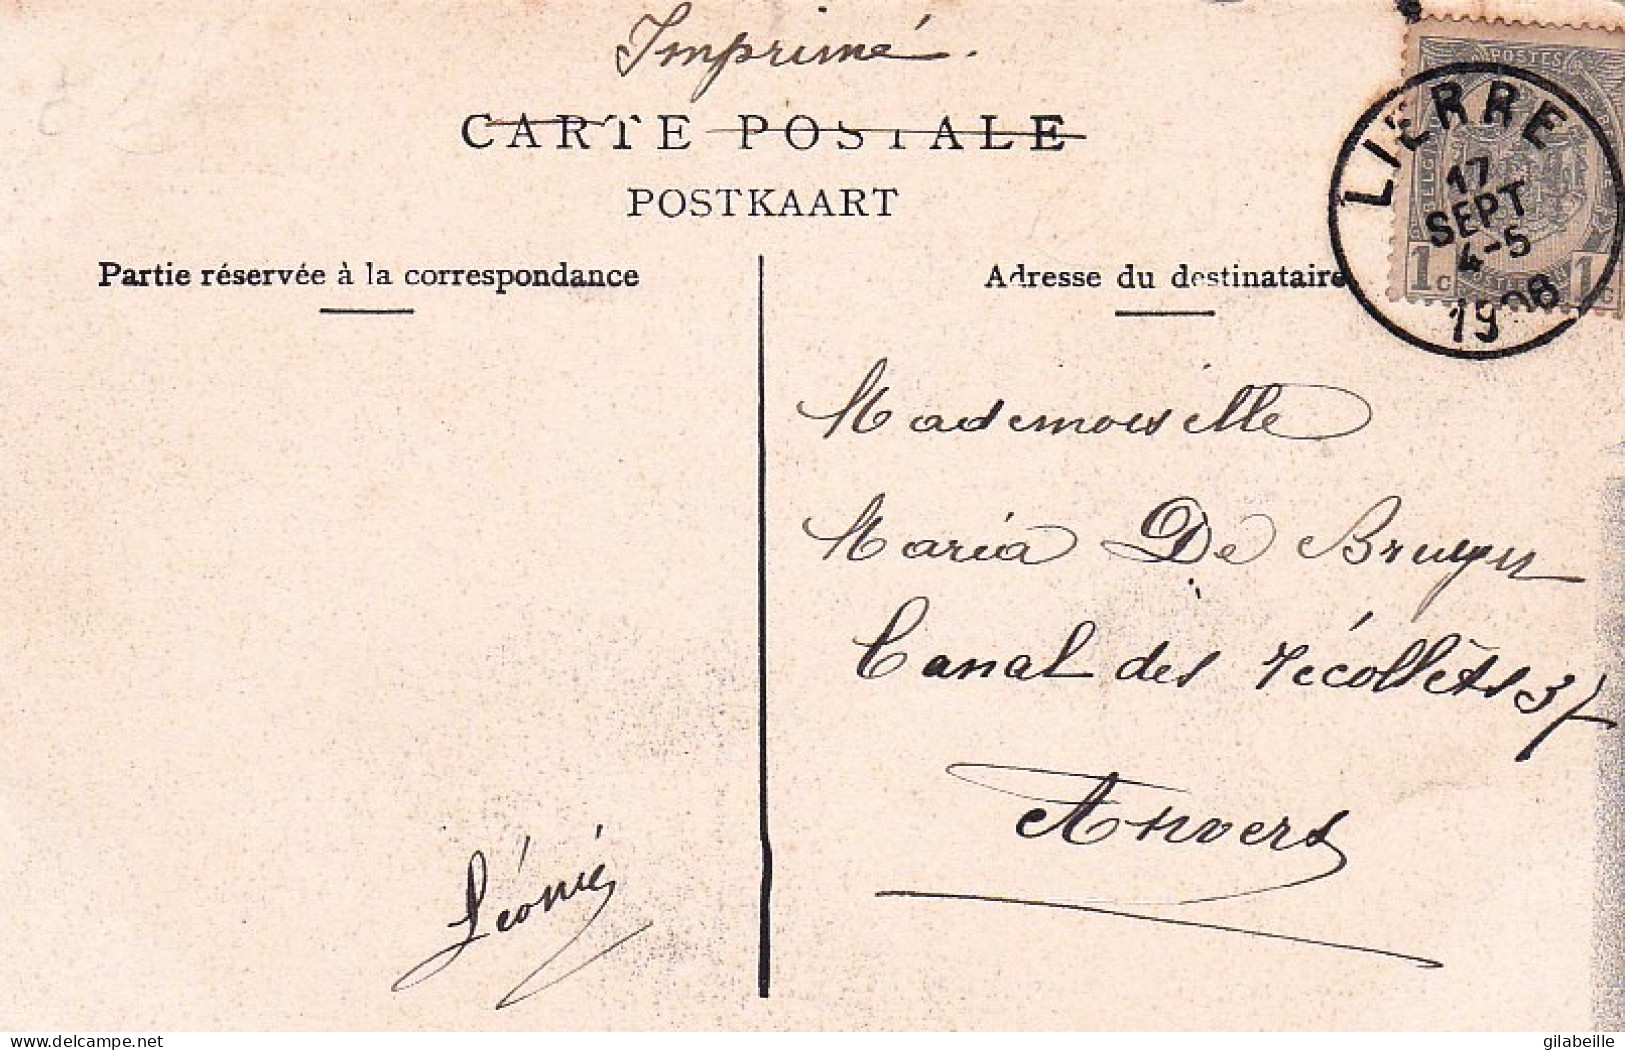 Imprimé.
CARTE POSTALE
POSTKAART
Partie réservée à la correspondance
Adresse du destinataire
POSTES
1c 1c
LIERRE
17
SEPT
4-5
1908
Mademoiselle
Maria De Bruyn
Canal des récollets 3/
Anvers
Léonie
delcampe.net
gilabeille